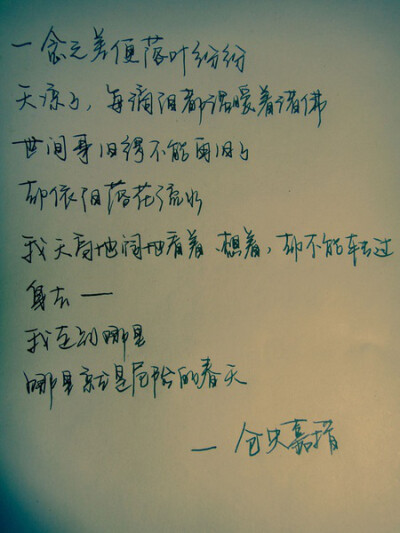 一念之差便落叶纷纷
天凉了，每滴泪都温暖着诸佛
世间事旧得不能再旧了
却依旧落花流水
我天高地阔地看着、想着，却不能转过
身去——
我走到哪里
哪里就是的春天
—仓央嘉措